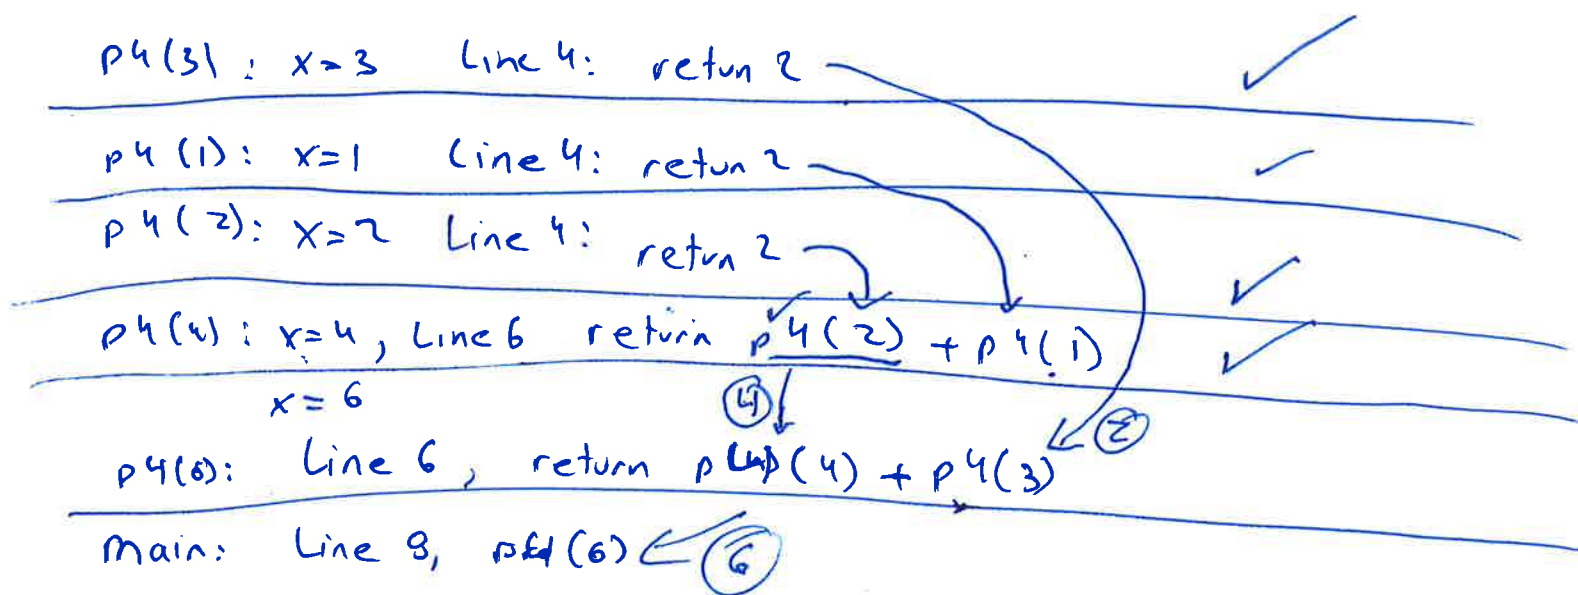 p4(3): x=3 Line 4: retun 2
p4(1): x=1 Line 4: retun 2
p4(2): x=2 Line 4: retrn 2
p4(4): x=4, Line 6 return p4(2) + p4(1)
x=6 4 2
p4(6): Line 6, return p4(4) + p4(3)
main: Line 9, p4(6) 6